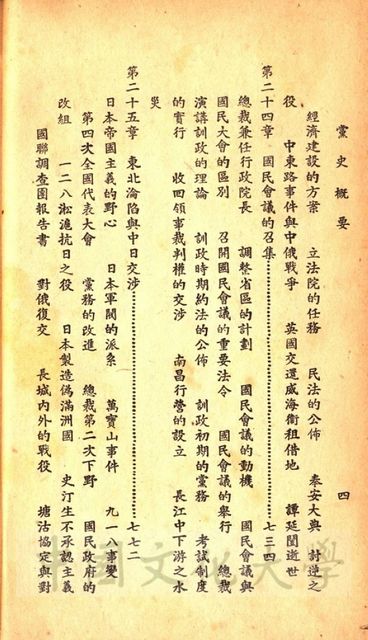 黨史概要　　四
經濟建設的方案　立法院的任務　民法的公佈　奉安大典　討逆之
役　中東路事件與中俄戰爭　英國交還威海衛租借地　譚延闓逝世
第二十四章　國民會議的召集…………………………………七三四
總裁兼任行政院長　調整省區的計劃　國民會議的動機　國民會議與
國民大會的區別　召開國民會議的重要法令　國民會議的舉行　總裁
演講訓政的理論　訓政時期約法的公佈　訓政初期的黨務　考試制度
的實行　收回領事裁判權的交涉　南昌行營的設立　長江中下游之水
災
第二十五章　東北淪陷與中日交涉…………………………………七七二
日本帝國主義的野心　日本軍閥的派系　萬寶山事件　九一八事變
第四次全國代表大會　黨務的改進　總裁第二次下野　國民政府的
改組　一二八淞滬抗日之役　日本製造偽滿洲國　史汀生不承認主義
國聯調查團報告書　對俄復交　長城內外的戰役　塘沽協定與對
中國文化大學